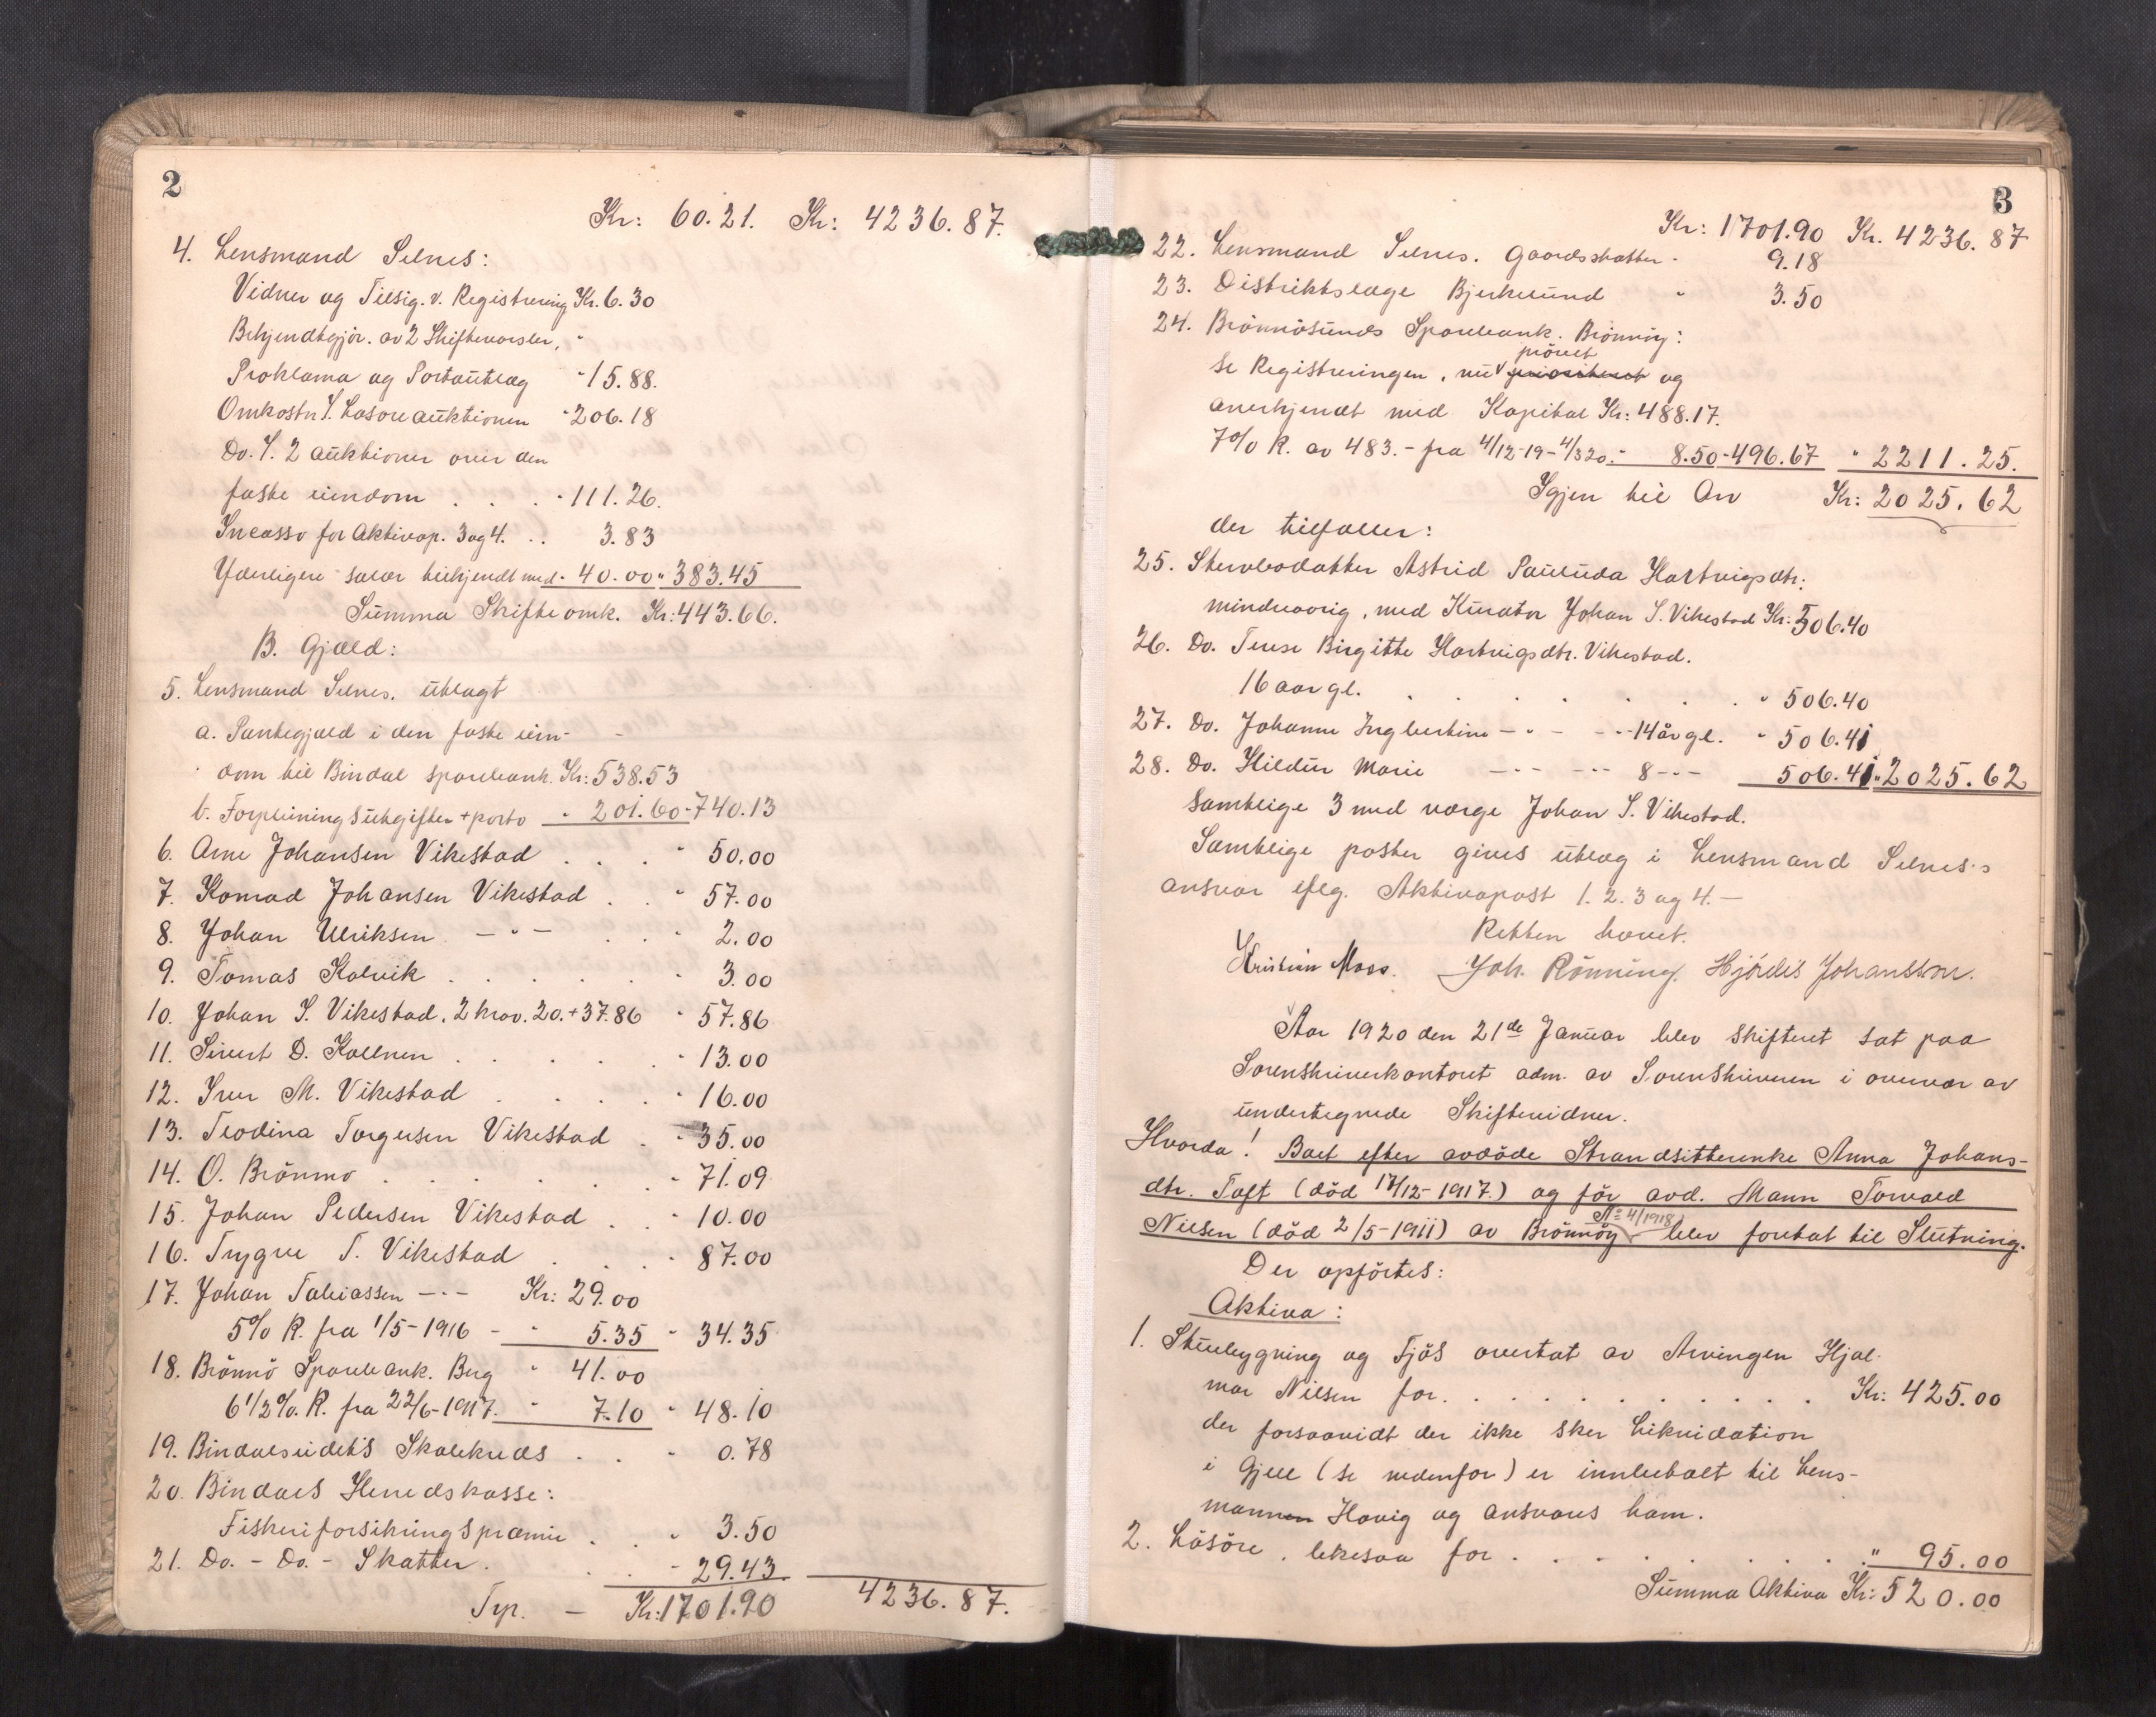 2
Kr: 60.21. Kr: 4236.87.
4. Lensmand Selnes:
Vidner og Tilsig. v. Registrering Kr. 6.30
Bekjendtgjør. av 2 Skiftevarsler, "
Proklama og Portoutlæg " 15.88.
Omkostn. f. Løsøreauktionen " 206.18
Do. f. 2 auktioner over den
faste eiendom . . . " 111.26.
Incasso for Aktivap. 3 og 4. .. 3.83
Yderligere salær tilkjendt med - 40.00 " 383.45
Summa Skifteomk. Kr: 443.66.
B. Gjæld:
5. Lensmand Selnes. utlagt
a. Pantegjæld i den faste eien-
dom til Bindal sparebank. Kr: 538.53
b. Forpleiningsutgifter + porto " 201.60 - 740.13
6. Arne Johansen Vikestad . . . " 50.00
7. Konrad Johansen Vikestad . . " 57.00
8. Johan Ulriksen — " — . . " 2.00
9. Tomas Kalvik . . . . . " 3.00
10. Johan S. Vikestad. 2 krav. 20.+37.86 " 57.86
11. Sivert D. Kollnen . . . . . " 13.00
12. Iver M. Vikestad . . . . " 16.00
13. Teodina Torgersen Vikestad . " 35.00
14. O. Brønmo . . . . . . . " 71.09
15. Johan Pedersen Vikestad . . " 10.00
16. Trygve T. Vikestad . . . " 87.00
17. Johan Tobiassen — " — Kr: 29.00
5% R. fra 1/5-1916 - " 5.35 " 34.35
18. Brønnø Sparebank. Berg " 41.00
6 1/2 %. R. fra 22/6-1917. " 7.10 " 48.10
19. Bindalseidets Skolekreds . . " 0.78
20. Bindals Herredskasse:
Fiskeriforsikringspræmie . . " 3.50
21. Do. - Do. - Skatter. . . " 29.43.
Trp. — Kr: 1701.90 4236.87.
3
Kr: 1701.90 Kr. 4236.87
22. Lensmand Selnes. Gaardsskatter " 9.18
23. Distriktslæge Bjerkelund " 3.50
24. Brønnøsunds Sparebank. Brønnøy:
prøvet
se Registreringen, nu prioritert og
anerkjendt med Kapital Kr: 488.17.
7% R. av 483.- fra 4/12-19-4/3 20. " 8.50 - 496.67 " 2211.25.
Igjen til Arv Kr: 2025.62
der tilfaller:
25. Stervbodatter Astrid Pauluda Hartvigsdtr.
mindreaarig, med Kurator Johan S. Vikestad Kr: 506.40
26. Do. Terese Birgitte Hartvigsdtr. Vikestad.
16 aar gl. . . . . . . " 506.40
27. Do. Johanne Ingbertine — " — — " — 14 år gl. " 506.41
28. Do. Hildur Marie — " — — " — 8 — " — 506.41 " 2025.62
samtlige 3 med værge Johan S. Vikestad.
Samtlige poster gives utlæg i Lensmand Selnes's
ansvar eflg. Aktivapost 1. 2. 3 og 4. —
Retten hævet.
Kristian Moss. Joh. Rønning. Hjørdis Johansson.
Aar 1920 den 21de Januar blev skifteret sat paa
Sorenskriverkontoret adm. av Sorenskriveren i overvær av
undertegnede Skiftevidner.
Hvorda! Boet efter avdøde Strandsitterenke Anna Johans-
dtr. Toft (død 17/12-1917.) og før avd. Mann Torvald
No 4/1918
Nielsen (død 2/5-1911) av Brønnøy blev foretat til Slutning.
Der opførtes:
Aktiva:
1. Stuebygning og Fjøs overtat av Arvingen Hjal-
mar Nilsen for. . . . . . . . . . . Kr: 425.00
der forsaavidt der ikke sker Likvidation
i Gjæld (se nedenfor) er innbetalt til Lens-
mannen Havig og ansvares ham.
2. Løsøre, likesaa for . . . . . . . . " 95.00
Summa Aktiva Kr: 520.00